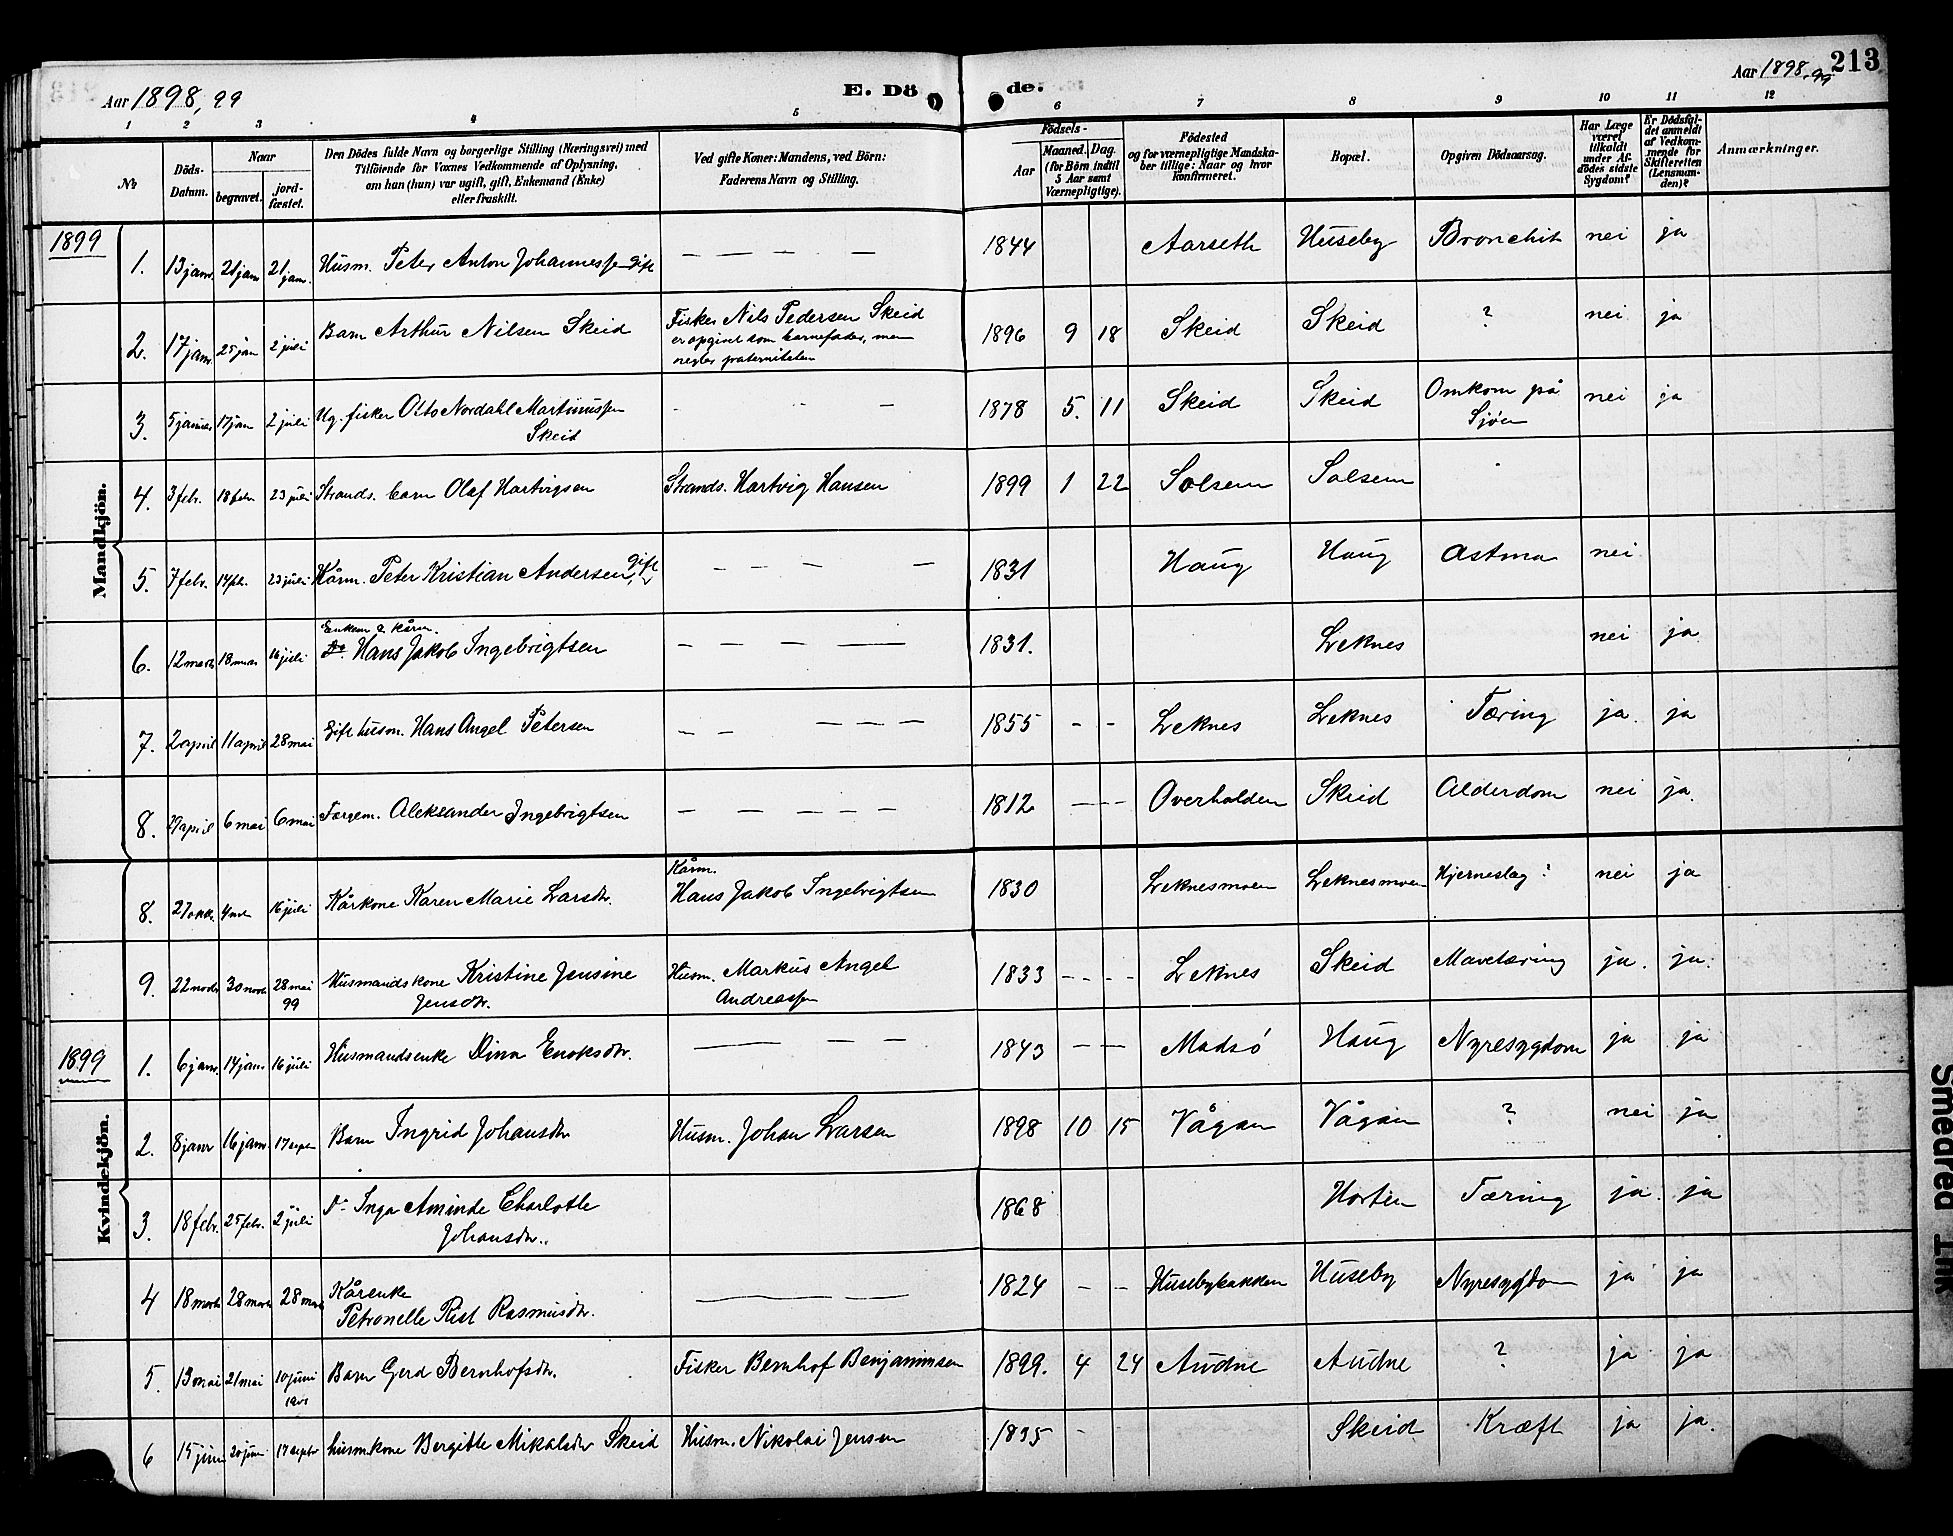 Aar 1898, 99
E. Dö
de.
Aar 1898, 99
213
1 2 3 4 5 6 7 8 9 10 11 12
№
Döds-Datum.
Naar
begravet.
jordfæstet.
Den Dödes fulde Navn og borgerlige Stilling (Næringsvei) med
Tilföiende for Voxnes Vedkommende af Oplysning,
om han (hun) var ugift, gift, Enkemand (Enke)
eller fraskilt.
Ved gifte Koner: Mandens, ved Börn:
Faderens Navn og Stilling.
Födsels-
Aar
Maaned.
Dag.
(for Börn indtil
5 Aar samt
Værnepligtige).
Födested
og for værnepligtige Mandska-
ber tillige: Naar og hvor
konfirmeret.
Bopæl.
Opgiven Dödsaarsag.
Har Læge
været
tilkaldt
under Af-
dödes sidste
Sygdom?
Er Dödsfal-
det anmeldt
af Vedkom-
mende for
Skifteretten
(Lensman-
den)?
Anmærkninger.
1899
Mandkjön.
1. 13 janr. 21 jan 21 jan. Husm. Peter Anton Johannessen gift — — — — 1844 Aarseth Huseby Bronchit nei ja
2. 17 janr. 25 jan 2 juli Barn Arthur Nilsen Skeid Fisker Nils Pedersen Skeid 1896 9 18 Skeid Skeid ? nei ja
er opgivet som barnefader, men
negter paterniteten
3. 5 januar 17 jan 2 juli Ug. fisker Otto Nordahl Martinussen - - — 1878 5. 11 Skeid Skeid Omkom på nei ja
Skeid
Sjöen
4. 3 febr. 18 febr 23 juli Strands. barn Olaf Hartvigsen Strands. Hartvig Hansen 1899 1 22 Solsem Solsem
5. 7 febr. 14 feb. 23 juli Kårm. Peter Kristian Andersen, gift — — — — 1831 Haug Haug Astma nei
Enkem & Kårm.
6. 12 marts 18 mars 16 juli Hans Jakob Ingebrigtsen — — — — 1831. Leknes nei ja
7. 2 april 11 april 28 mai Gift husm. Hans Angel Petersen — — — — — 1855 - - Leknes Leknes Tæring ja. ja
8. 29 april 6 mai 6 mai Forgem. Aleksander Ingebrigtsen — — — — — 1812 — - - Overhalden Skeid Alderdom nei ja.
Kårm.
8. 27 okt. 4 nov 16 juli Kårkone Karen Marie Larsdtr. Hans Jakob Ingebrigtsen 1830 Leknesmoen Leknesmoen Hjerneslag? nei ja
9. 22 novbr 30 novbr 28 mai Husmandskone Kristine Jensine Husm. Markus Angel 1833 - - - - Leknes Skeid Mavetæring ja. ja.
99 Jensdtr. Andreassen
1899
Kvindekjön.
1. 6 janr. 14 janr 16 juli Husmandsenke Dina Enoksdtr. — — — — 1843 — — Madsö Haug Nyresygdom ja ja
2. 8 janr 16 janr. 17 septbr Barn Ingrid Johansdtr Husm. Johan Larsen 1898 10 15 Vågan Vågan ? nei ja
3. 18 febr. 25 febr. 2 juli Inga Aminde Charlotte 1868 Horten Tæring ja. ja
Johansdtr.
4 18 marts 28 marts 28 marts Kårenke — — — 1824 - - Husebybakken Huseby Nyresygdom ja ja
Petronelle Rist Rasmusdtr.
5. 13 mai 21 mai 10 juni Barn Gerd Bernhofsdtr. Fisker Bernhof Benjaminsen 1899. 4 24 Audne Audne ? ja ja
1901
6 15 juni 20 juni 17 septbr husm.kone Bergitte Mikalsdtr Skeid Husm. Nikolai Jensen 1835 - Skeid Kræft ja ja.
Smedred Ink